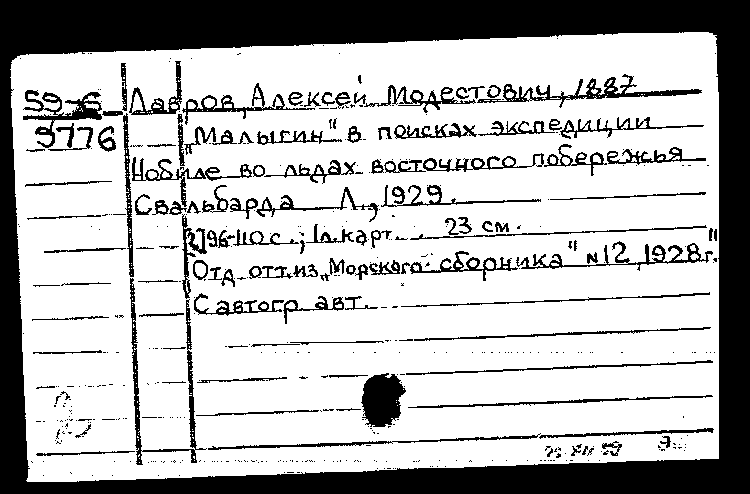 59-6 Лавров, Алексей Модестович, 1887
9776 „Малыгин" в поисках экспедиции
Нобиле во льдах восточного побережья
Свальбарда Л., 1929.
[2] 96-110 с.; 1 л. карт. 23 см.
Отд. отт. из „Морского сборника" N12, 1928 г."
С автогр. авт.
2